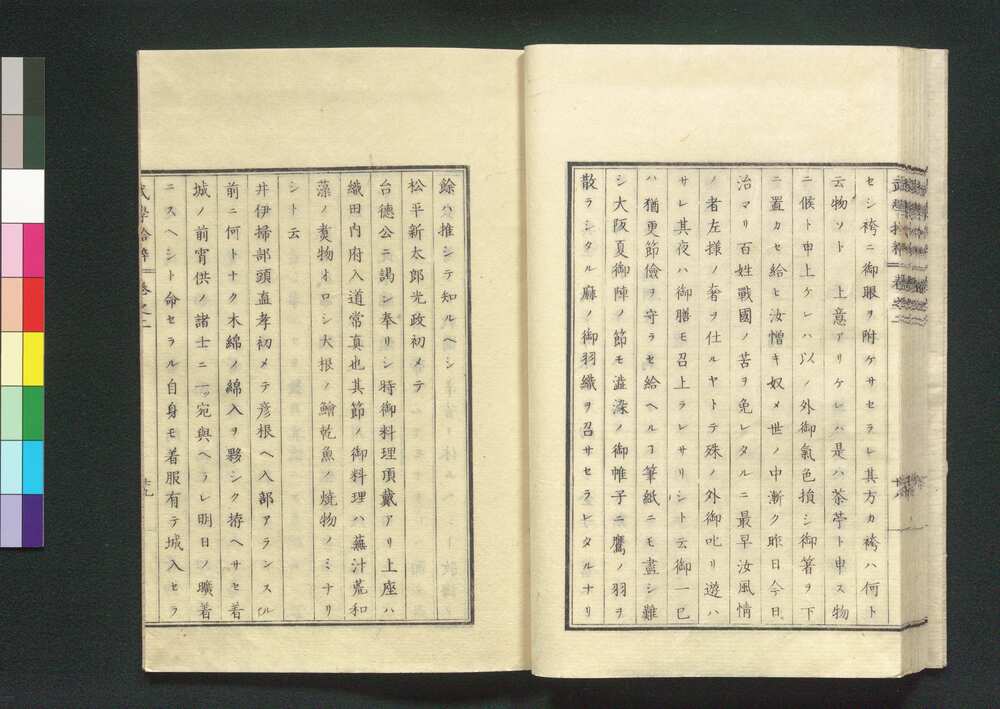 セシ袴ニ御眼ヲ附ケサセラレ其方カ袴ハ何ト
云物ソト 上意アリケレハ是ハ茶苧ト申ス物
ニ候ト申上ケレハ以ノ外御氣色損シ御箸ヲ下
ニ置カセ給ヒ汝憎キ奴メ世ノ中漸ク昨日今日
治マリ百姓戰國ノ苦ヲ免レタルニ最早汝風情
ノ者左様ノ奢ヲ仕ルヤトテ殊ノ外御叱リ遊ハ
サレ其夜ハ御膳モ召上ラレサリシト云御一巳
ハ猶更節儉ヲ守ラセ給ヘルヿ筆紙ニモ盡シ難
シ大阪夏御陣ノ節モ澁染ノ御帷子ニ鷹ノ羽ヲ
散ラシタル麻ノ御羽織ヲ召サセラレタルナリ
餘ハ推シテ知ルヘシ
松平新太郎光政初メテ
台德公ニ謁シ奉リシ時御料理頂戴アリ上座ハ
織田内府入道常真也其節ノ御料理ハ蕪汁荒和
藻ノ煑物オロシ大根ノ鱠乾魚ノ焼物ノミナリ
シト云
井伊掃部頭直孝初メテ彦根ヘ入部アランスル
前ニ何トナク木綿ノ綿入ヲ夥シク拵ヘサセ着
城ノ前宵供ノ諸士ニ一ッ宛與ヘラレ明日ノ曠着
ニスヘシト命セラル自身モ着服有テ城入セラ
武學拾粹 卷之二